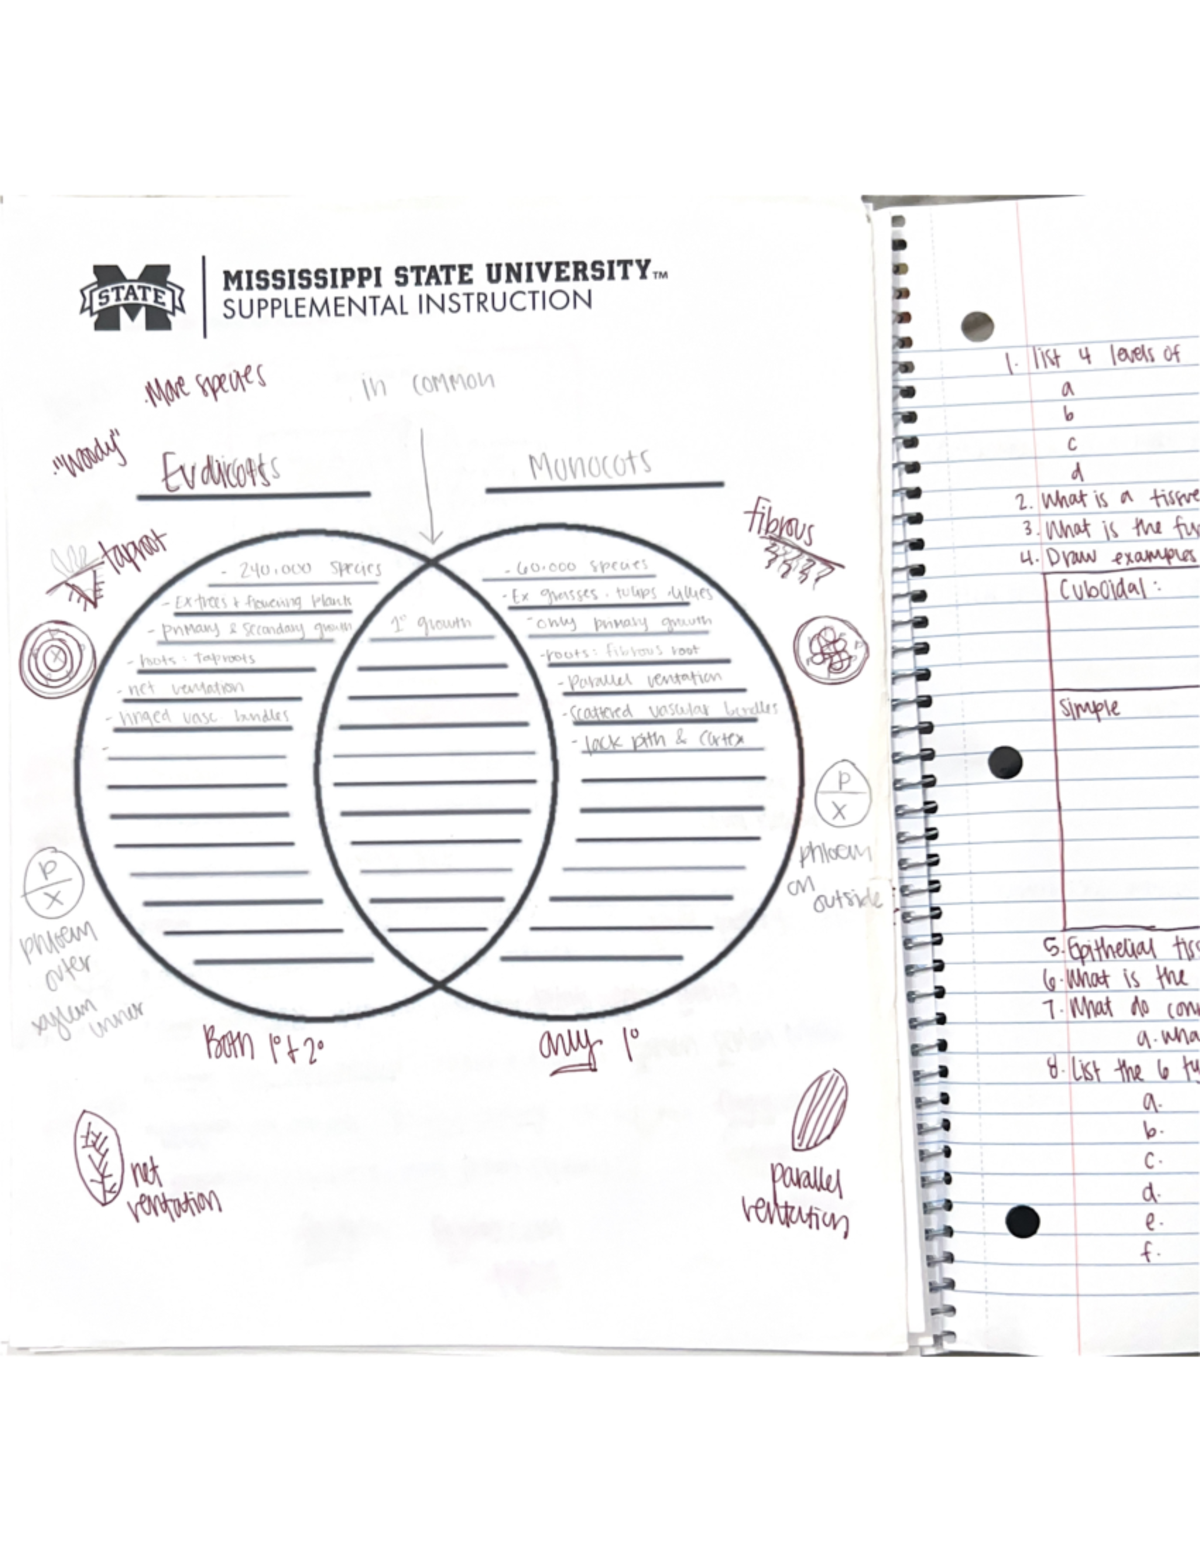 STATE
MISSISSIPPI STATE UNIVERSITY™
SUPPLEMENTAL INSTRUCTION
. More species
in common
. "woody"
Eudicots
Monocots
taproot
fibrous
- 240,000 species
- Ex: trees & flowering plants
- primary & secondary growth
- roots: taproots
- net ventation
- ringed vasc. bundles
-
1° growth
- 60,000 species
- Ex grasses, tulips, lillies
- only primary growth
- roots: fibrous root
- parallel ventation
- scattered vascular bundles
- lack pith & cortex
P
X
phloem
outer
xylem
inner
P
X
phloem
on
outside
Both 1° + 2°
only 1°
net
ventation
parallel
ventation
1. list 4 levels of
a
b
c
d
2. What is a tissue
3. What is the fu
4. Draw examples
Cuboidal:
Simple
5. Epithelial tiss
6. What is the
7. What do con
a. wha
8. List the 6 ty
a.
b.
c.
d.
e.
f.